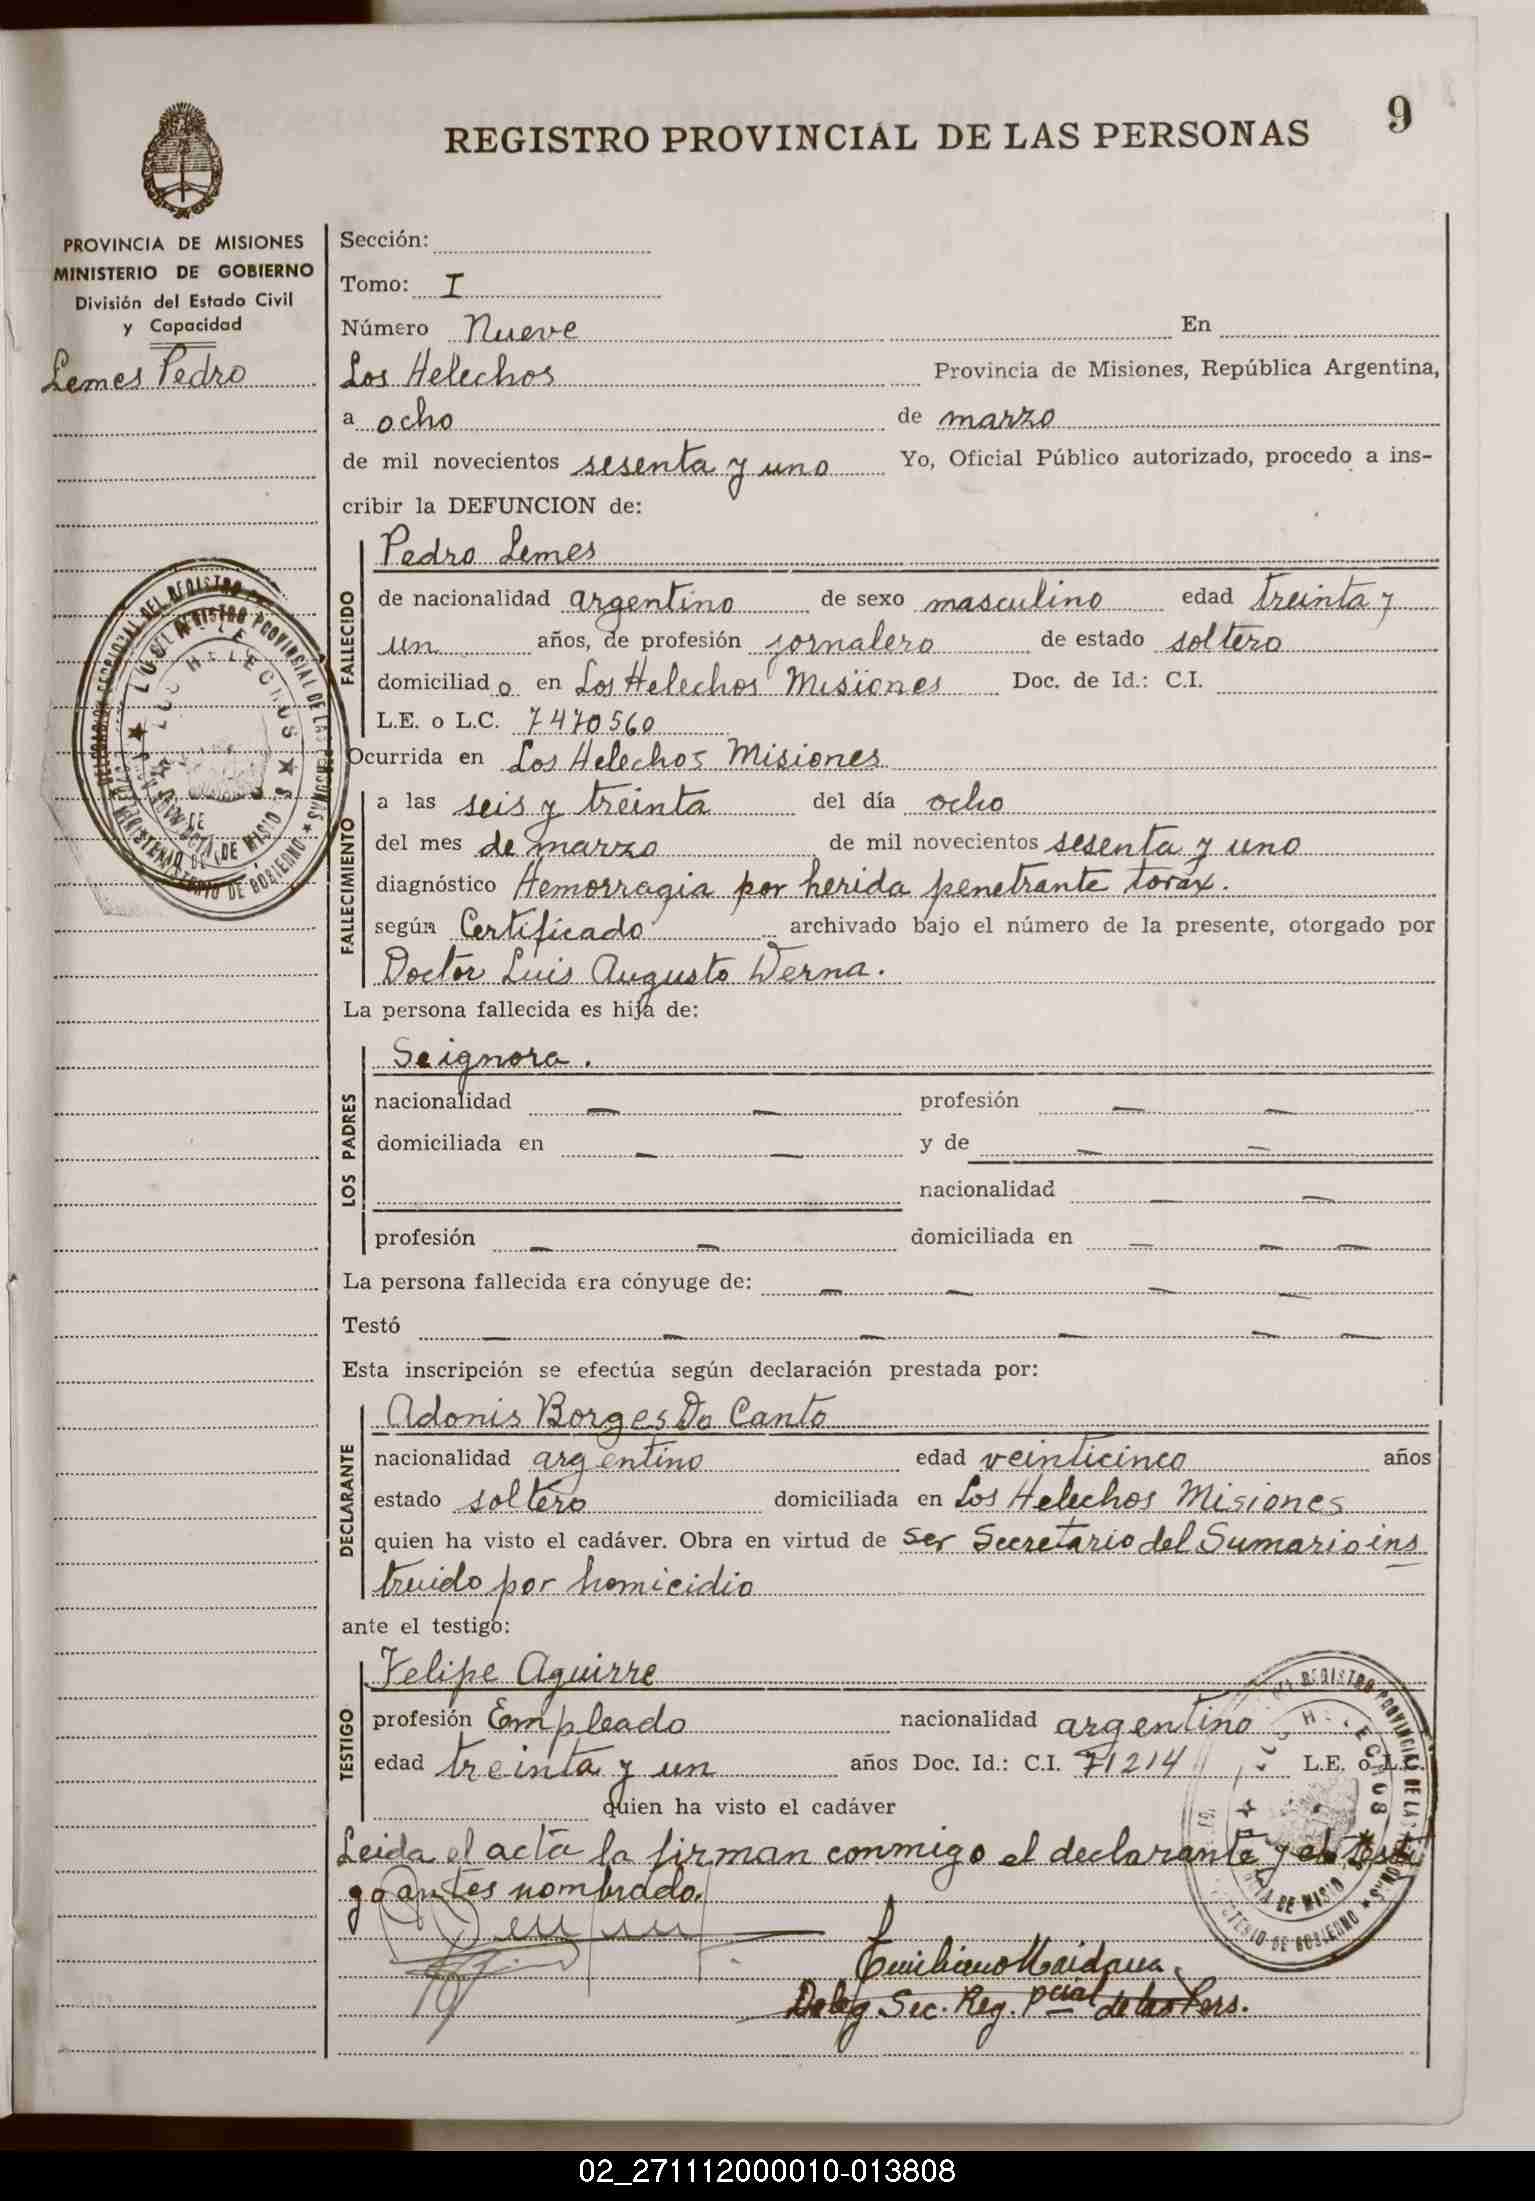 9
REGISTRO PROVINCIAL DE LAS PERSONAS
PROVINCIA DE MISIONES
MINISTERIO DE GOBIERNO
División del Estado Civil
y Capacidad
Lemes Pedro
Sección:
Tomo: I
Número Nueve En
Los Helechos Provincia de Misiones, República Argentina,
a ocho de marzo
de mil novecientos sesenta y uno Yo, Oficial Público autorizado, procedo a ins-
cribir la DEFUNCION de:
FALLECIDO
Pedro Lemes
de nacionalidad argentino de sexo masculino edad treinta y
un años, de profesión jornalero de estado soltero
domiciliado en Los Helechos Misiones Doc. de Id.: C.I.
L.E. o L.C. 7470560
Ocurrida en Los Helechos Misiones
FALLECIMIENTO
a las seis y treinta del día ocho
del mes de marzo de mil novecientos sesenta y uno
diagnóstico Hemorragia por herida penetrante torax.
según Certificado archivado bajo el número de la presente, otorgado por
Doctor Luis Augusto Derna.
La persona fallecida es hija de:
LOS PADRES
Seignora.
nacionalidad — — profesión — —
domiciliada en — — y de — —
nacionalidad — —
profesión — — domiciliada en — — —
La persona fallecida era cónyuge de: — — — —
Testó — — — — — —
Esta inscripción se efectúa según declaración prestada por:
DECLARANTE
Adonis Borges Do Canto
nacionalidad argentino edad veinticinco años
estado soltero domiciliada en Los Helechos Misiones
quien ha visto el cadáver. Obra en virtud de ser Secretario del Sumario ins
truido por homicidio
ante el testigo:
TESTIGO
Felipe Aguirre
profesión Empleado nacionalidad argentino
edad treinta y un años Doc. Id.: C.I. 71214 L.E. o L.C.
quien ha visto el cadáver
Leida el acta la firman conmigo el declarante y el testi
go antes nombrado.
Emiliano Maidana
Deleg Sec. Reg. Pcial de las Pers.
REGISTRO PROVINCIAL DE LAS PERSONAS
LOS HELECHOS
MINISTERIO DE GOBIERNO
02_271112000010-013808